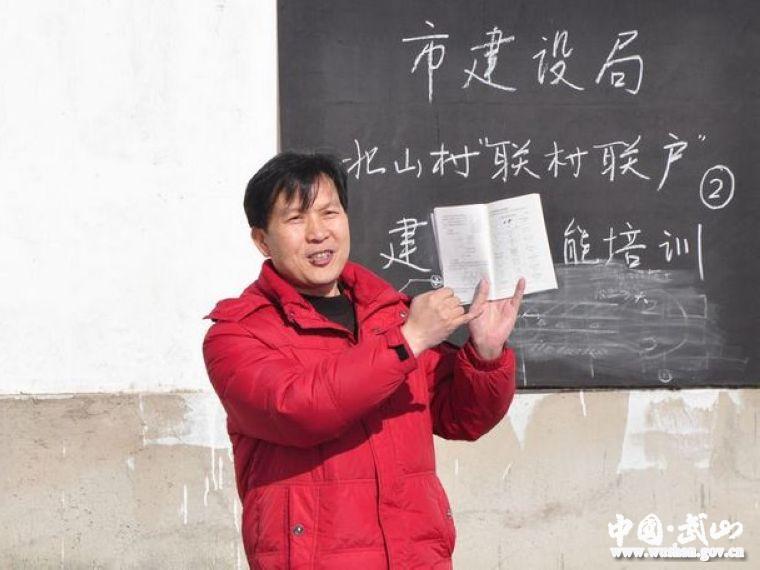 市建设局
北山村“联村联户”
②
建 能培训
中国·武山
www.wushan.gov.cn